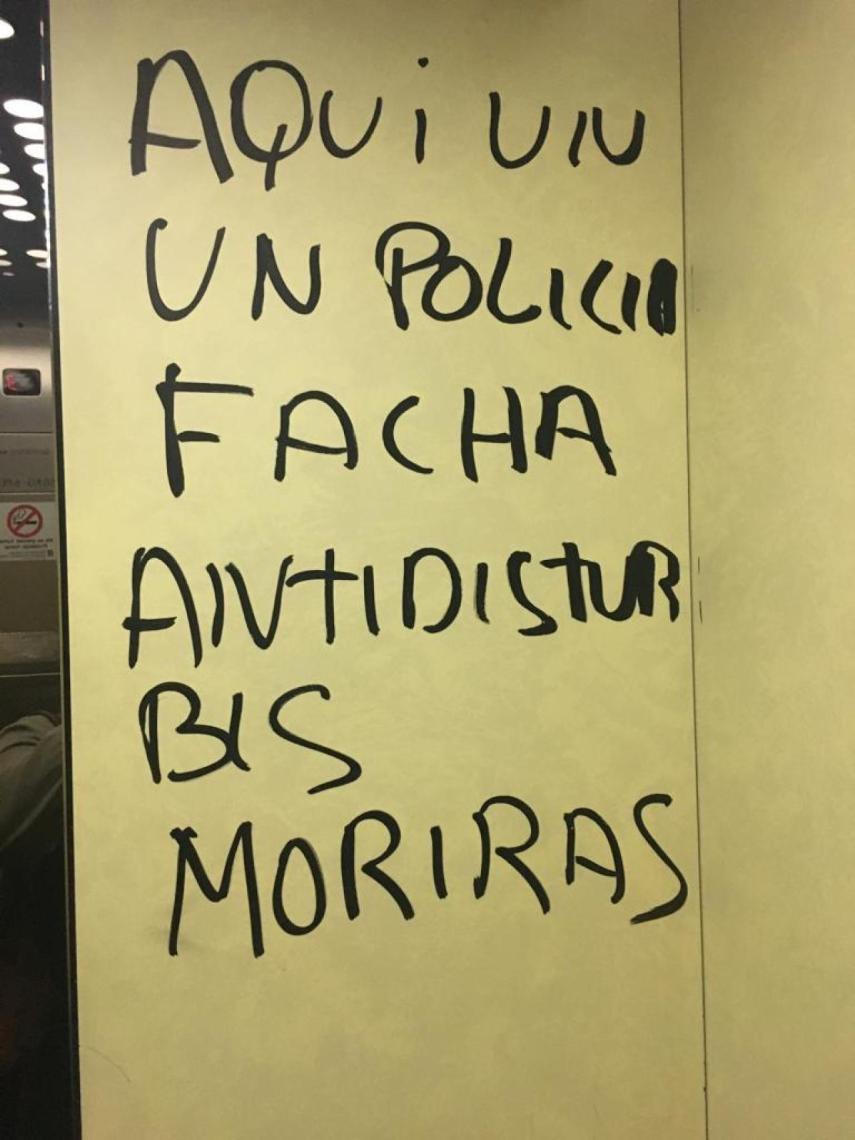 AQUi UN
UN POLICIA
FACHA
ANTIDISTUR
BIS
MORIRAS